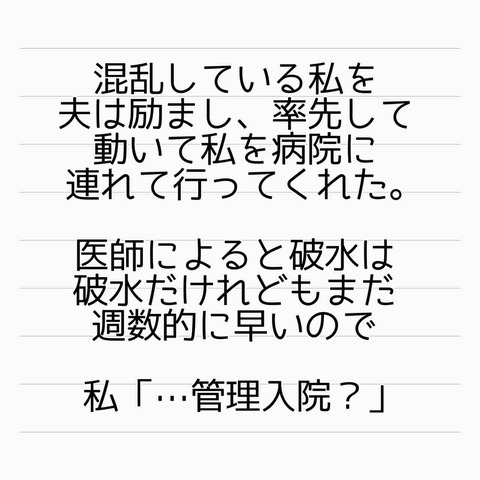 混乱している私を
夫は励まし、率先して
動いて私を病院に
連れて行ってくれた。
医師によると破水は
破水だけれどもまだ
週数的に早いので
私「…管理入院？」